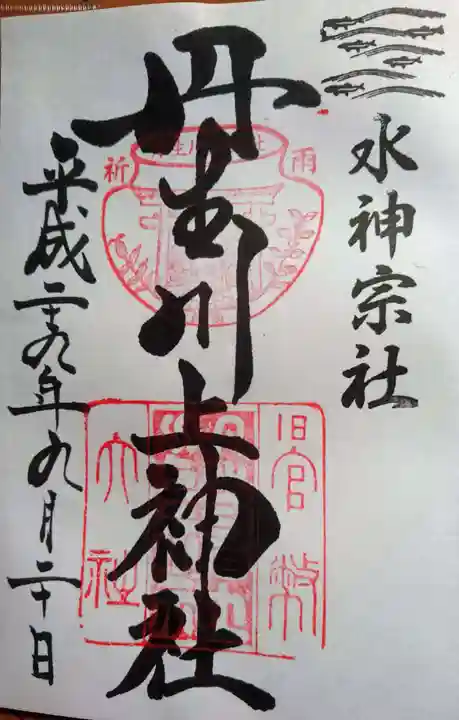 水神宗社
丹生川上神社
雨
祈
旧官幣
大社
平成二十九年九月二十日